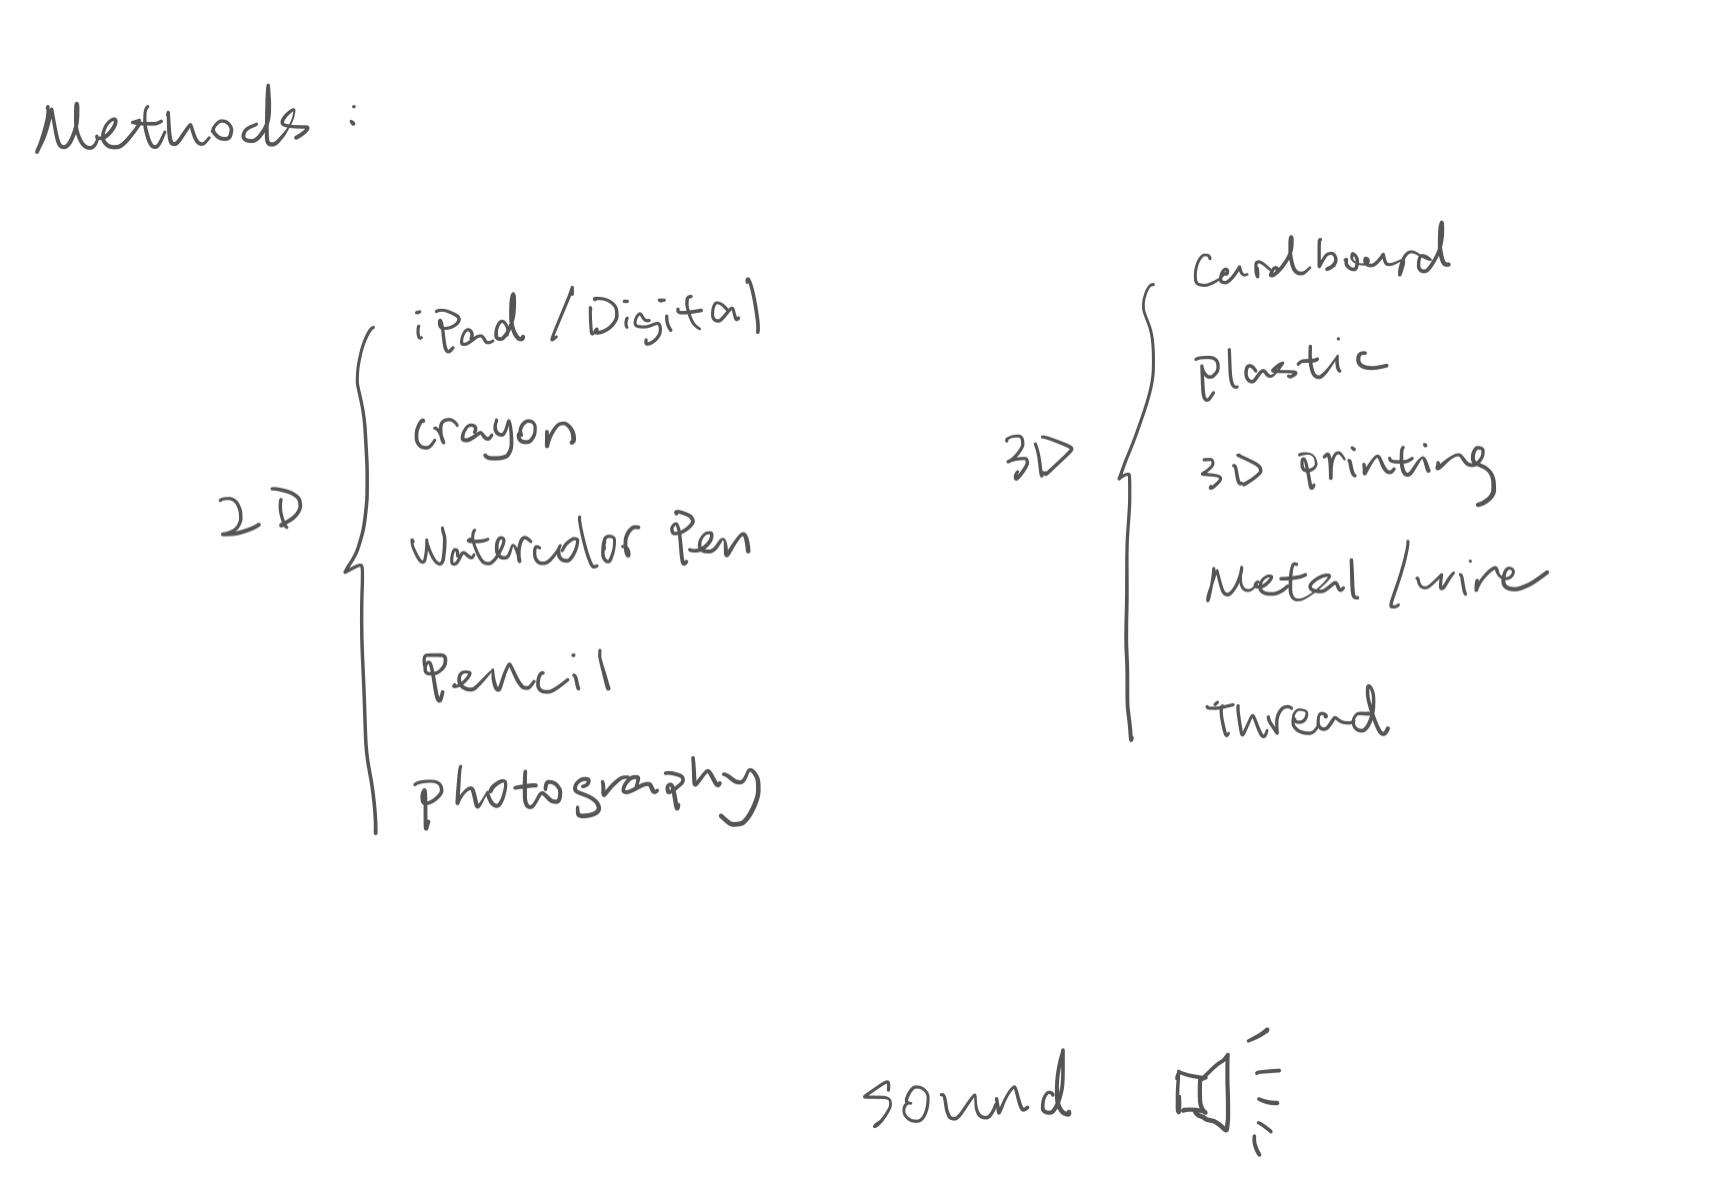 Methods :
2D
iPad / Digital
crayon
Watercolor Pen
Pencil
photography
3D
Cardboard
plastic
3D printing
Metal / wire
Thread
sound